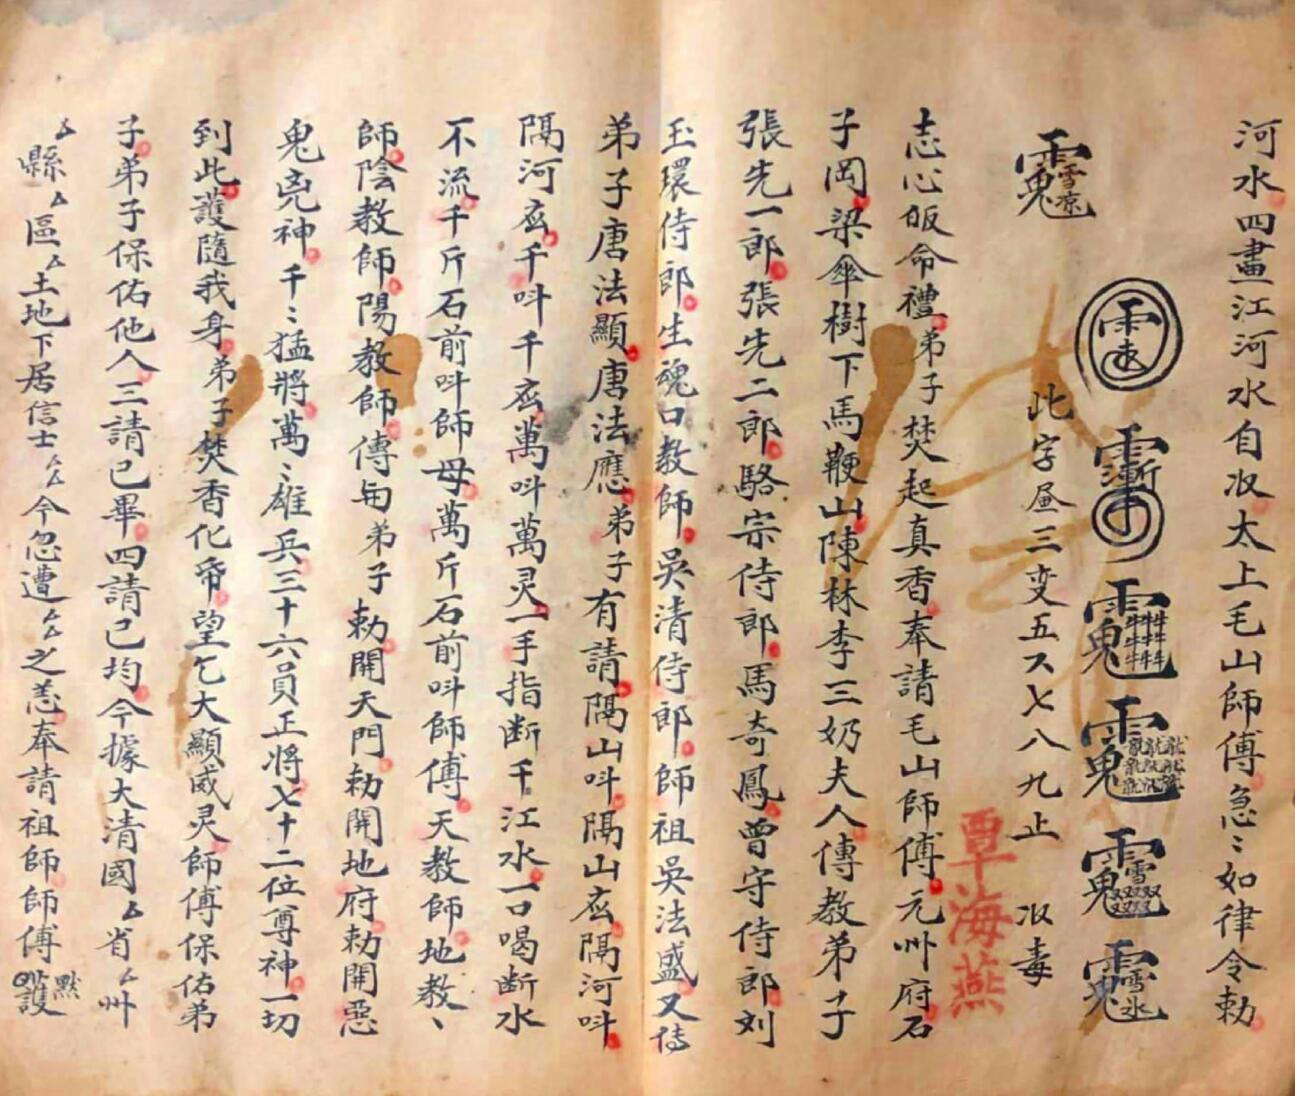 河水四畫江河水自收太上毛山師傅急〻如律令勅
此字屈三变五ㄡ七八九止 收毒
覃海燕
志心皈命禮弟子焚起真香奉請毛山師傅元州府石
子岡梁傘樹下馬鞭山陳林李三奶夫人傳教弟子
張先一郎張先二郎駱宗侍郎馬奇鳳曾守侍郎刘
玉環侍郎生魂口教師吳清侍郎師祖吳法盛又傳
弟子唐法顯唐法應弟子有請隔山呌隔山应隔河呌
隔河应千呌千应萬呌萬灵一手指断千江水一口喝断水
不流千斤石前呌師母萬斤石前呌師傅天教師地教丶
師陰教師陽教師傅與弟子勅開天門勅開地府勅開惡
鬼兇神千〻猛將萬〻雄兵三十六員正將七十二位尊神一切
到此護隨我身弟子焚香化帋望乞大顯威灵師傅保佑弟
子弟子保佑他人三請已畢四請已均今據大清國厶省厶州
厶縣厶區厶土地下居信士厶厶今忽遭厶厶之恙奉請祖師師傅默